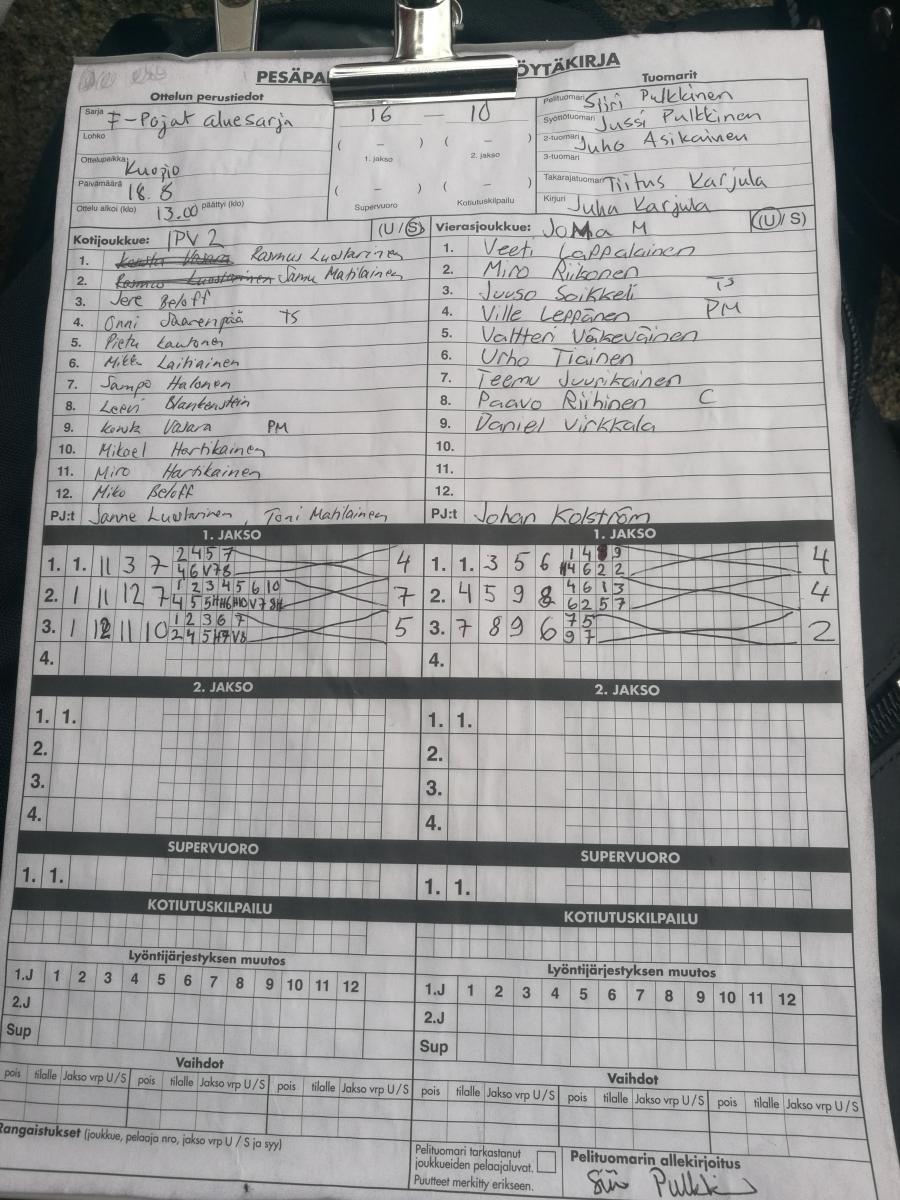 PESÄPA ÖYTÄKIRJA
Ottelun perustiedot
Sarja F-Pojat aluesarja
Lohko
Ottelupaikka Kuopio
Päivämäärä 18.8
Ottelu alkoi (klo) 13.00 päättyi (klo)
16 — 10
( – ) ( – )
1. jakso 2. jakso
( – ) ( – )
Supervuoro Kotiutuskilpailu
Tuomarit
Pelituomari Siiri Pulkkinen
Syöttötuomari Jussi Pulkkinen
2-tuomari Juho Asikainen
3-tuomari
Takarajatuomari Tiitus Karjula
Kirjuri Juha Karjula
Kotijoukkue: IPV 2 (U / S)
1. Rasmus Luostarinen
2. Samu Matilainen
3. Jere Beloff
4. Onni Saarenpää TS
5. Pietu Kautonen
6. Mikk Laitiainen
7. Sampo Halonen
8. Leevi Blankenstein
9. Konsta Vasara PM
10. Mikael Hartikainen
11. Miro Hartikainen
12. Miko Beloff
PJ:t Janne Luostarinen, Toni Matilainen
Vierasjoukkue: JoMa M (U / S)
1. Veeti Lappalainen
2. Miro Riikonen
3. Juuso Soikkeli TS
4. Ville Leppänen PM
5. Valtteri Väkeväinen
6. Urho Tiainen
7. Teemu Juurikainen
8. Paavo Riihinen C
9. Daniel Virkkala
10.
11.
12.
PJ:t Johan Kolström
1. JAKSO
1. 1. 11 3 7 2 4 5 7 4
4 6 V7 8
2. 1 11 12 7 1 2 3 4 5 6 10 7
3. 1 12 11 10 1 2 3 6 7 5
4.
1. JAKSO
1. 1. 3 5 6 1 4 9 4
4 6 2 2
2. 4 5 9 8 4 6 1 3 4
6 2 5 7
3. 7 8 9 6 7 5 2
9 7
4.
2. JAKSO
1. 1.
2.
3.
4.
2. JAKSO
1. 1.
2.
3.
4.
SUPERVUORO
1. 1.
SUPERVUORO
1. 1.
KOTIUTUSKILPAILU
KOTIUTUSKILPAILU
Lyöntijärjestyksen muutos
1.J 1 2 3 4 5 6 7 8 9 10 11 12
2.J
Sup
Lyöntijärjestyksen muutos
1.J 1 2 3 4 5 6 7 8 9 10 11 12
2.J
Sup
Vaihdot
pois tilalle Jakso vrp U/S pois tilalle Jakso vrp U/S pois tilalle Jakso vrp U/S
Vaihdot
pois tilalle Jakso vrp U/S pois tilalle Jakso vrp U/S pois tilalle Jakso vrp U/S
Rangaistukset (joukkue, pelaaja nro, jakso vrp U / S ja syy)
Pelituomari tarkastanut
joukkueiden pelaajaluvat.
Puutteet merkitty erikseen.
Pelituomarin allekirjoitus